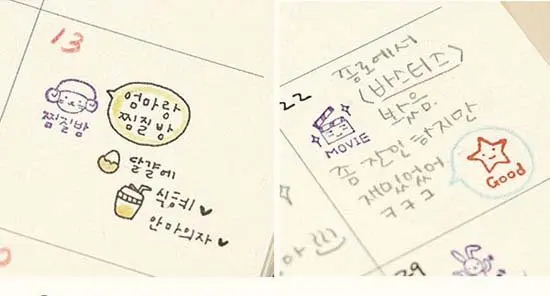 13
엄마랑
찜질방
찜질방
달걀에
식혜 ♥
안마의자 ♥
22
프로에서
<바스터즈>
봤음
MOVIE
좀 잔인하지만
재밌었어
ㅋㅋㅋ
Good
29